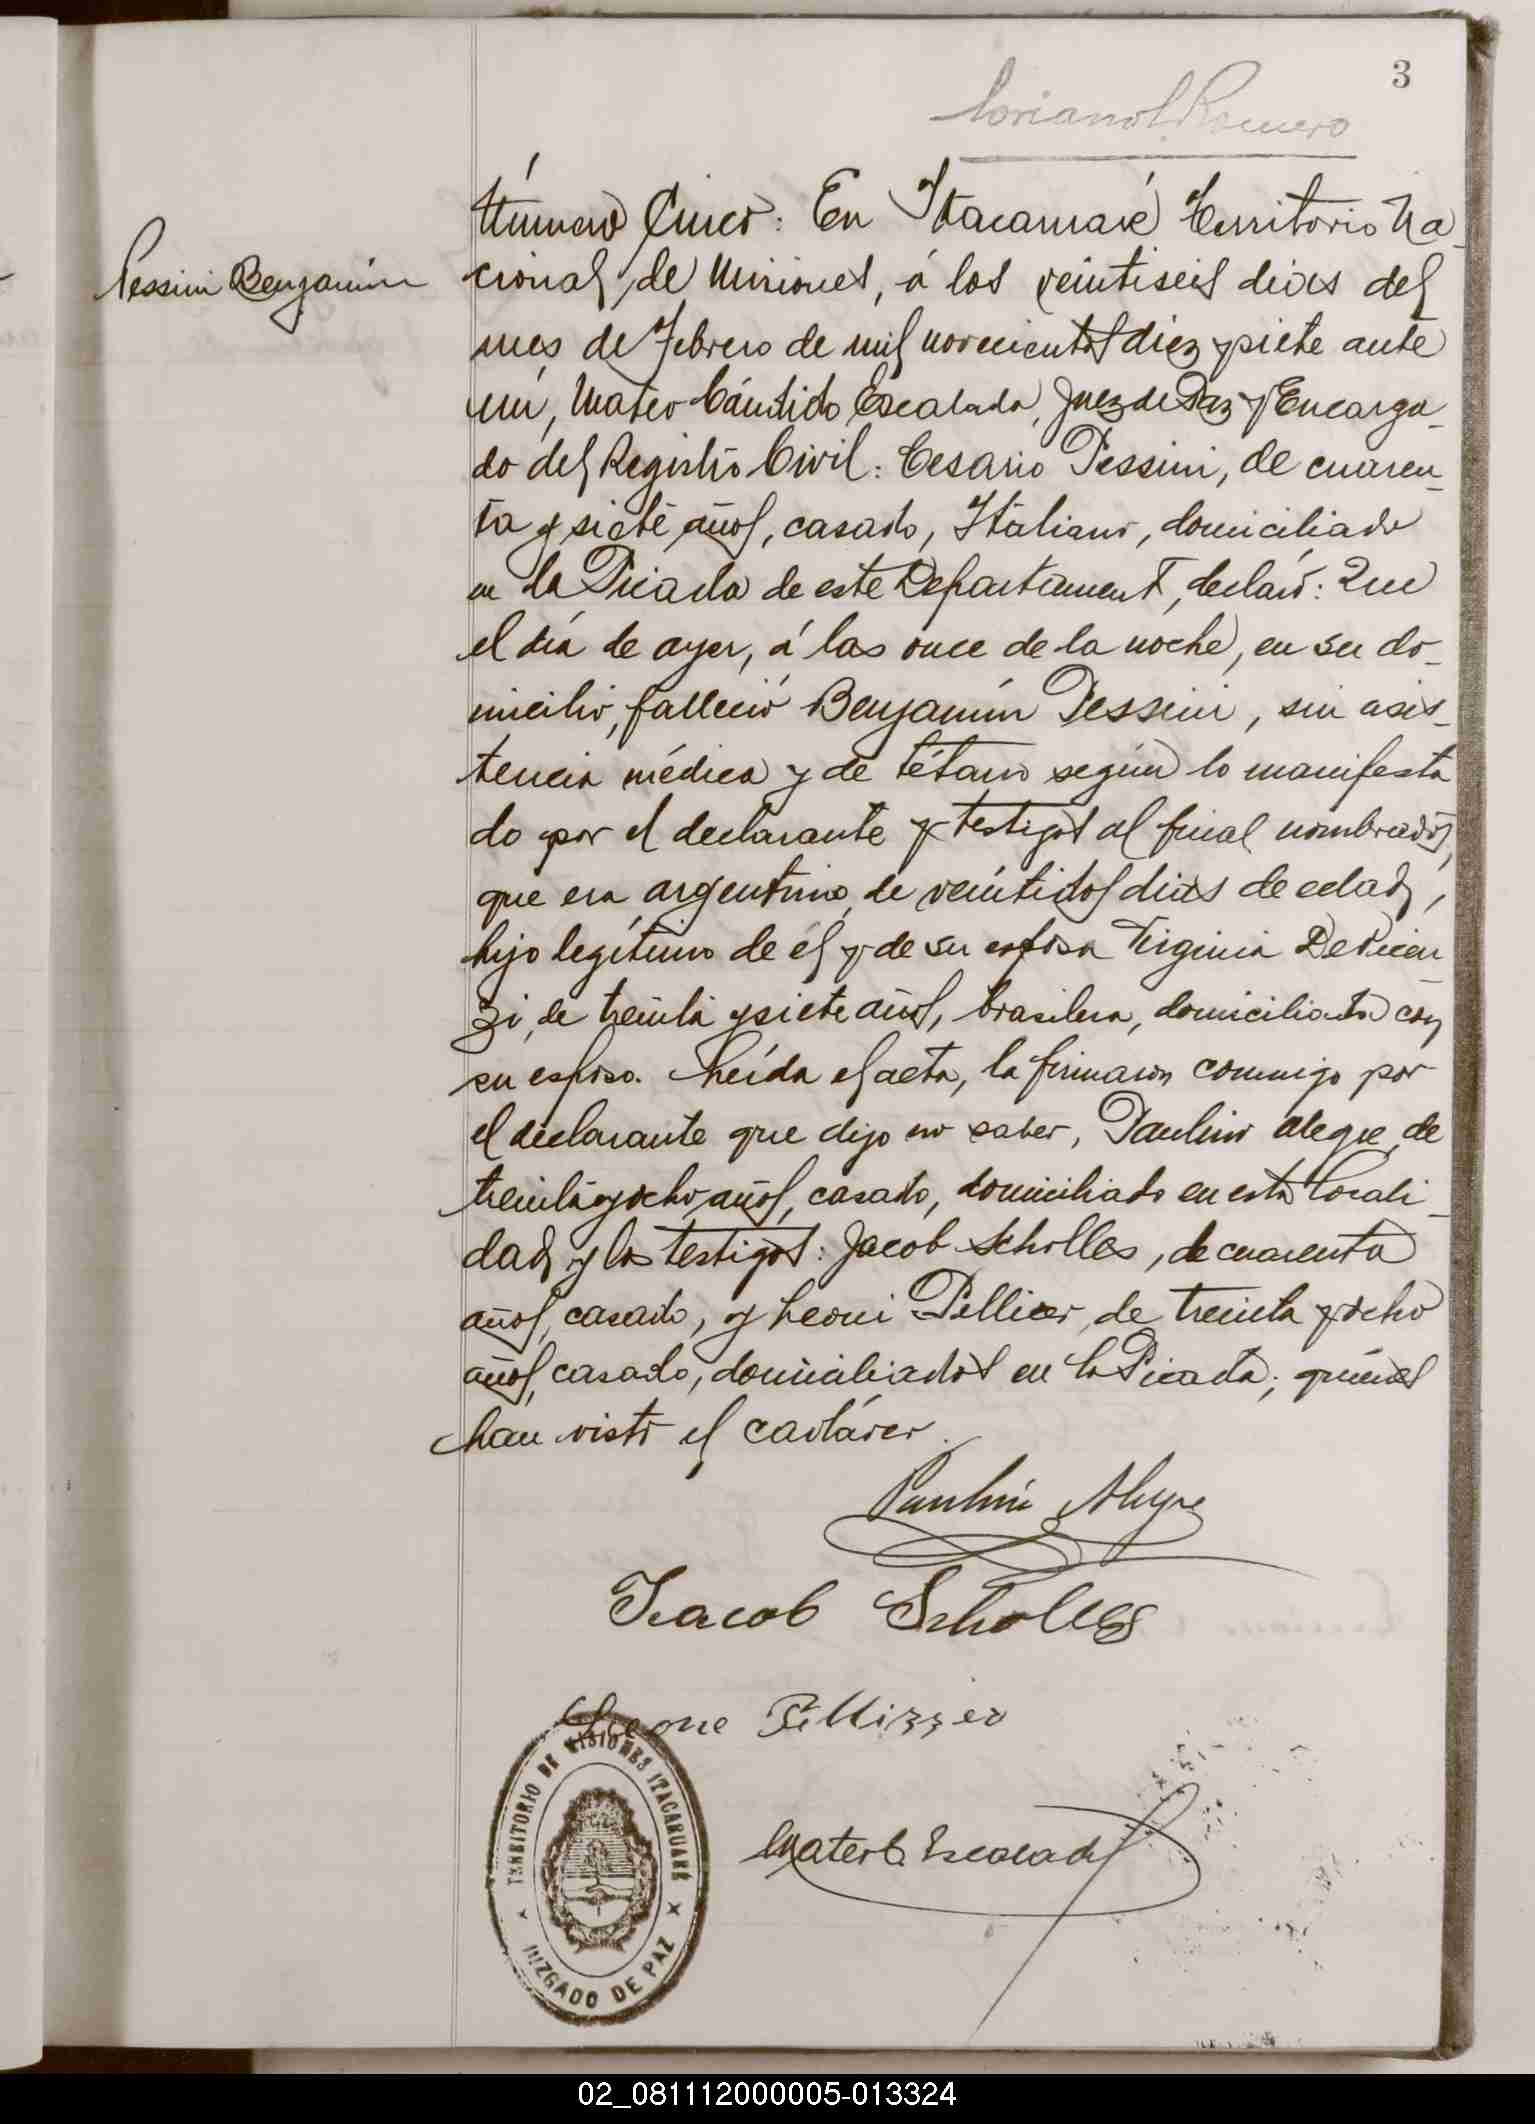 3
Romero
Número Cinco: En Itacaruaré Territorio Na-
Pessini Benjamín
cional de Misiones, á los veintiseis dias del
mes de Febrero de mil novecientos diez y siete ante
mi, Mateo Cándido Escalada, Juez de Paz y Encarga-
do del Registro Civil: Cesario Pessini, de cuaren-
ta y siete años, casado, Italiano, domiciliado
en la Picada de este Departamento, declaró: Que
el día de ayer, á las once de la noche, en su do-
micilio, falleció Benjamín Pessini, sin asis-
tencia médica y de tétano según lo manifesta
do por el declarante y testigos al final nombrados,
que era argentino, de veintidos dias de edad,
hijo legítimo de él y de su esposa Virginia De Vicen
zi, de treinta y siete años, brasilera, domiciliada con
su esposo. Leída el acta, la firmaron conmigo por
el declarante que dijo no saber, Paulino Alegre, de
treinta y ocho años, casado, domiciliado en esta locali-
dad, y los testigos: Jacob Scholles, de cuarenta
años, casado, y Leoni Pellicer, de treinta y ocho
años, casado, domiciliados en la Picada; quienes
han visto el cadáver.
Paulino Alegre
Jacob Scholles
Leone Pellizzer
TERRITORIO DE MISIONES ITACARUARÉ
JUZGADO DE PAZ
Mateo C. Escalada
02_081112000005-013324